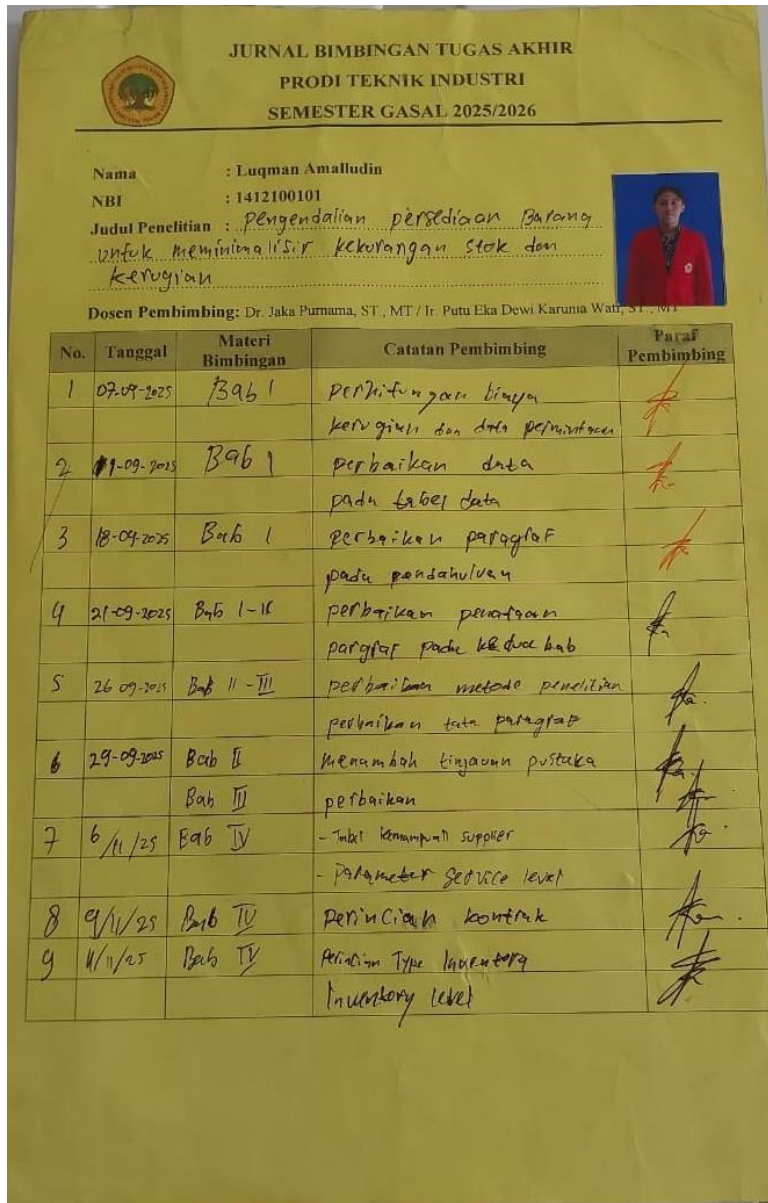 JURNAL BIMBINGAN TUGAS AKHIR
PRODI TEKNIK INDUSTRI
SEMESTER GASAL 2025/2026
Nama : Luqman Amalludin
NBI : 1412100101
Judul Penelitian : Pengendalian persediaan Barang
untuk meminimalisir kekurangan stok dan
kerugian
Dosen Pembimbing: Dr. Jaka Purnama, ST., MT / Ir. Putu Eka Dewi Karunia Wati, ST., MT
No. Tanggal Materi Bimbingan Catatan Pembimbing Paraf Pembimbing
1 07-09-2025 Bab 1 perhitungan biaya
kerugian dan data permintaan
2 11-09-2025 Bab 1 perbaikan data
pada tabel data
3 18-09-2025 Bab 1 perbaikan paragraf
pada pendahuluan
4 21-09-2025 Bab I-II perbaikan penataan
pargraf pada kedua bab
5 26 09-2025 Bab II - III perbaikan metode penelitian
perbaikan tata paragraf
6 29-09-2025 Bab II menambah tinjauan pustaka
Bab III perbaikan
7 6/11/25 Bab IV - Tabel kemampuan supplier
- Parameter service level
8 9/11/25 Bab IV perincian kontrak
9 11/11/25 Bab IV Perincian Type Inventory
Inventory level